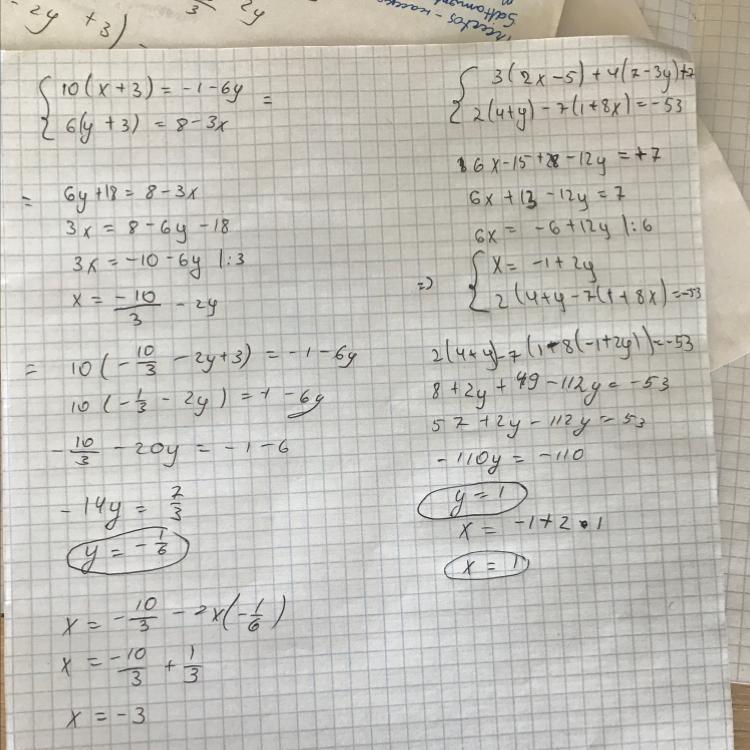 2y + 3)
2y
{ 10(x+3) = -1-6y =
{ 6(y+3) = 8-3x
= 6y+18 = 8-3x
3x = 8-6y-18
3x = -10-6y |:3
x = -10/3 - 2y
= 10(-10/3 - 2y+3) = -1-6y
10(-1/3 - 2y) = -1-6y
-10/3 - 20y = -1-6
-14y = 7/3
y = -1/6
x = -10/3 - 2x(-1/6)
x = -10/3 + 1/3
x = -3
{ 3(2x-5)+4(7-3y)+7
{ 2(4+y)-7(1+8x) = -53
6x-15+28-12y = +7
6x+13-12y = 7
6x = -6+12y |:6
=> { x = -1+2y
{ 2(4+y-7(1+8x) = -53
2(4+y)-7(1+8(-1+2y)) = -53
8+2y+49-112y = -53
57+2y-112y = 53
-110y = -110
y = 1
x = -1+2·1
x = 1